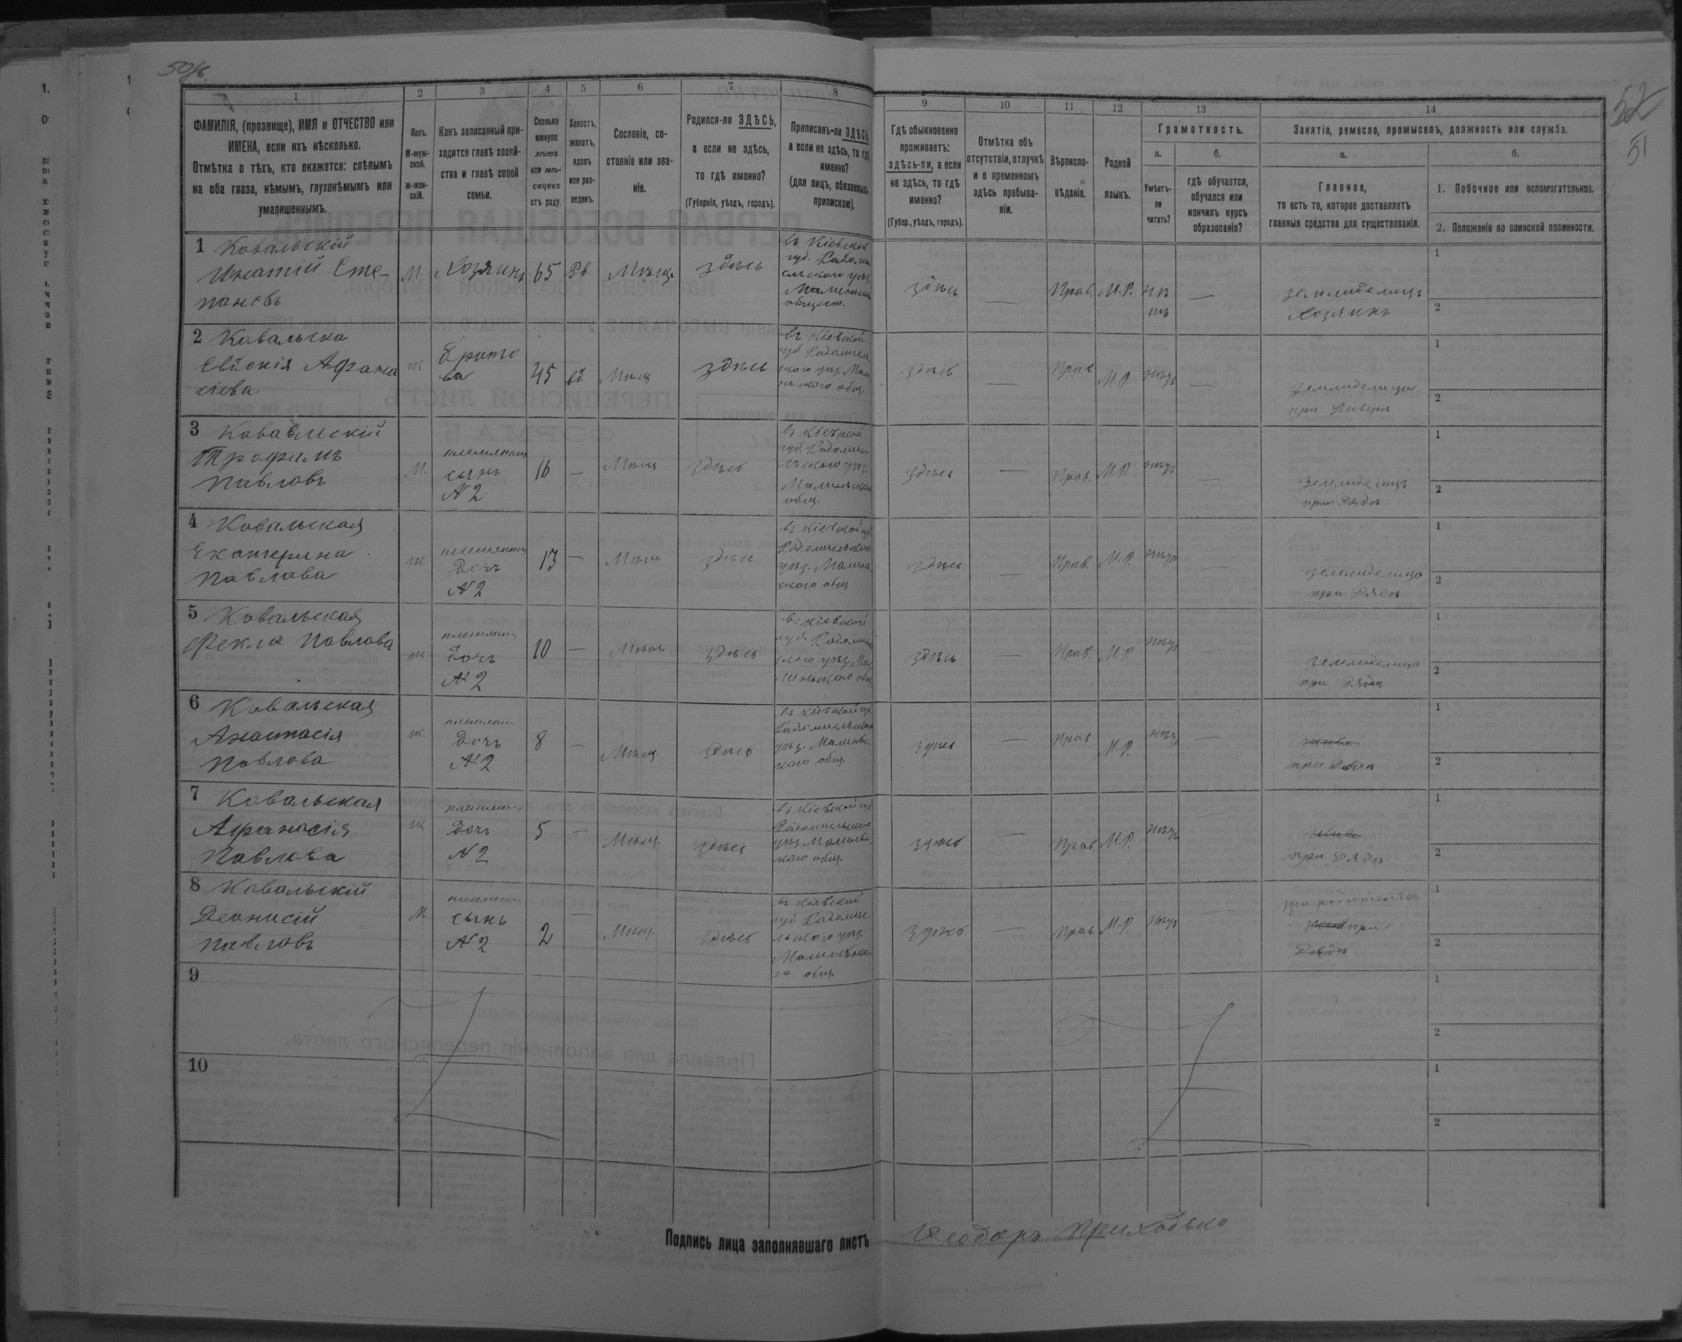 50/б
52
51
1
2
3
4
5
6
7
8
9
10
11
12
13
14
ФАМИЛІЯ, (прозвище), ИМЯ и ОТЧЕСТВО или
ИМЕНА, если ихъ нѣсколько.
Отмѣтка о тѣхъ, кто окажется: слѣпымъ
на оба глаза, нѣмымъ, глухонѣмымъ или
умалишеннымъ.
Полъ.
М-муж-
ской.
ж-жен-
скій.
Какъ записанный при-
ходится главѣ хозяй-
ства и главѣ своей
семьи.
Сколько
минуло
лѣтъ
или мѣ-
сяцевъ
отъ роду.
Холостъ,
женатъ,
вдовъ
или раз-
веденъ.
Сословіе, со-
стояніе или зва-
ніе.
Родился-ли ЗДѢСЬ,
а если не здѣсь,
то гдѣ именно?
(Губернія, уѣздъ, городъ).
Приписанъ-ли ЗДѢСЬ
а если не здѣсь, то гдѣ
именно?
(для лицъ, обязанныхъ
припискою).
Гдѣ обыкновенно
проживаетъ:
здѣсь-ли, а если
не здѣсь, то гдѣ
именно?
(Губер., уѣздъ, городъ).
Отмѣтка объ
отсутствіи, отлучкѣ
и о временномъ
здѣсь пребыва-
ніи.
Вѣроиспо-
вѣданіе.
Родной
языкъ.
Грамотность.
а.
Умѣетъ-
ли
читать?
б.
гдѣ обучается,
обучался или
кончилъ курсъ
образованія?
Занятія, ремесло, промыселъ, должность или служба.
а.
Главное,
то есть то, которое доставляетъ
главныя средства для существованія.
б.
1. Побочное или вспомогательное.
2. Положеніе по воинской повинности.
1 Ковальскій
Игнатій Сте-
пановъ
М. Хозяинъ 65 Мѣщ. здѣсь
въ Кіевской
губ. Радомы
сльского уѣз.
Малинскаго
общест.
здѣсь — Прав. М.Р. нѣ
тъ —
земледѣлецъ
Хозяинъ
1
2
2 Ковальска
Евдокія Афана
сіева
ж 45 вд Мѣщ здѣсь
въ Кіевской
губ. Радомысл
ского уѣз. Мал
нского общ.
здѣсь — Прав М.Р. нѣтъ —
земледѣлица
1
2
3 Ковальскій
Трофимъ
Павловъ
М. сынъ
№ 2
16 — Мѣщ здѣсь
въ Кіевской
губ. Радомыс
льского уѣз.
Малинского
общ.
здѣсь — Прав. М.Р. нѣтъ —
земледѣлецъ
при Дядѣ
1
2
4 Ковальская
Екатерина
Павлова
ж Дочь
№ 2
13 — Мѣщ здѣсь
въ Кіевской гу
Радомысльского
уѣз. Малин
ского общ
здѣсь — Прав. М.Р. нѣтъ —
земледѣлица
при Дядѣ
1
2
5 Ковальская
Фекла Павлова
ж Дочь
№ 2
10 — Мѣщ здѣсь
въ Кіевской
губ. Радомысл
ского уѣз. Ма
линьского общ
здѣсь — Прав. М.Р. нѣтъ —
земледѣлица
при Дядѣ
1
2
6 Ковальская
Анастасія
Павлова
ж Дочь
№ 2
8 — Мѣщ здѣсь
въ Кіевской гу
Радомысльского
уѣз. Малинь
ского общ.
здѣсь — Прав М.Р. нѣтъ —
при Дядѣ
1
2
7 Ковальская
Афанасія
Павлова
ж Дочь
№ 2
5 — Мѣщ. здѣсь
въ Кіевской гу
Радомысльского
уѣз Малинь
ского общ.
здѣсь — Прав М.Р. нѣтъ —
при Дядѣ
1
2
8 Ковальскій
Деонисій
Павловъ
М сынъ
№ 2
2 — Мѣщ. здѣсь
въ Кіевской
губ. Радомыс
льского уѣз.
Малинска
го общ.
здѣсь — Прав. М.Р. нѣтъ —
при
Дядѣ
1
2
9
1
2
10
1
2
Подпись лица заполнявшаго листъ Феодоръ Приходько